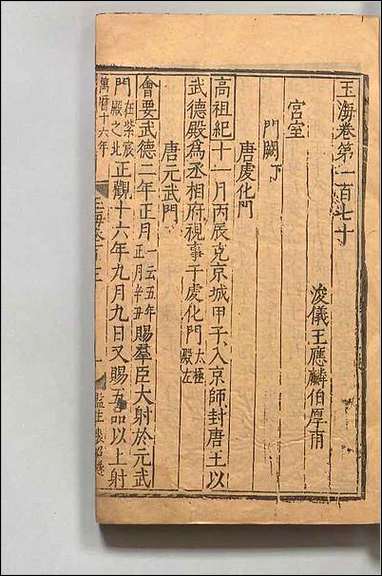 玉海卷第一百七十
浚儀王應麟伯厚甫
宮室
門闕下
唐虔化門
高祖紀十一月丙辰克京城甲子入京師封唐王以
武德殿爲丞相府視事于虔化門太極殿左
唐元武門
會要武德二年正月一云五年正月辛丑賜羣臣大射於元武
門在紫宸殿之北正觀十六年九月九日又賜五品以上射
萬曆十六年
玉海卷
一
監生